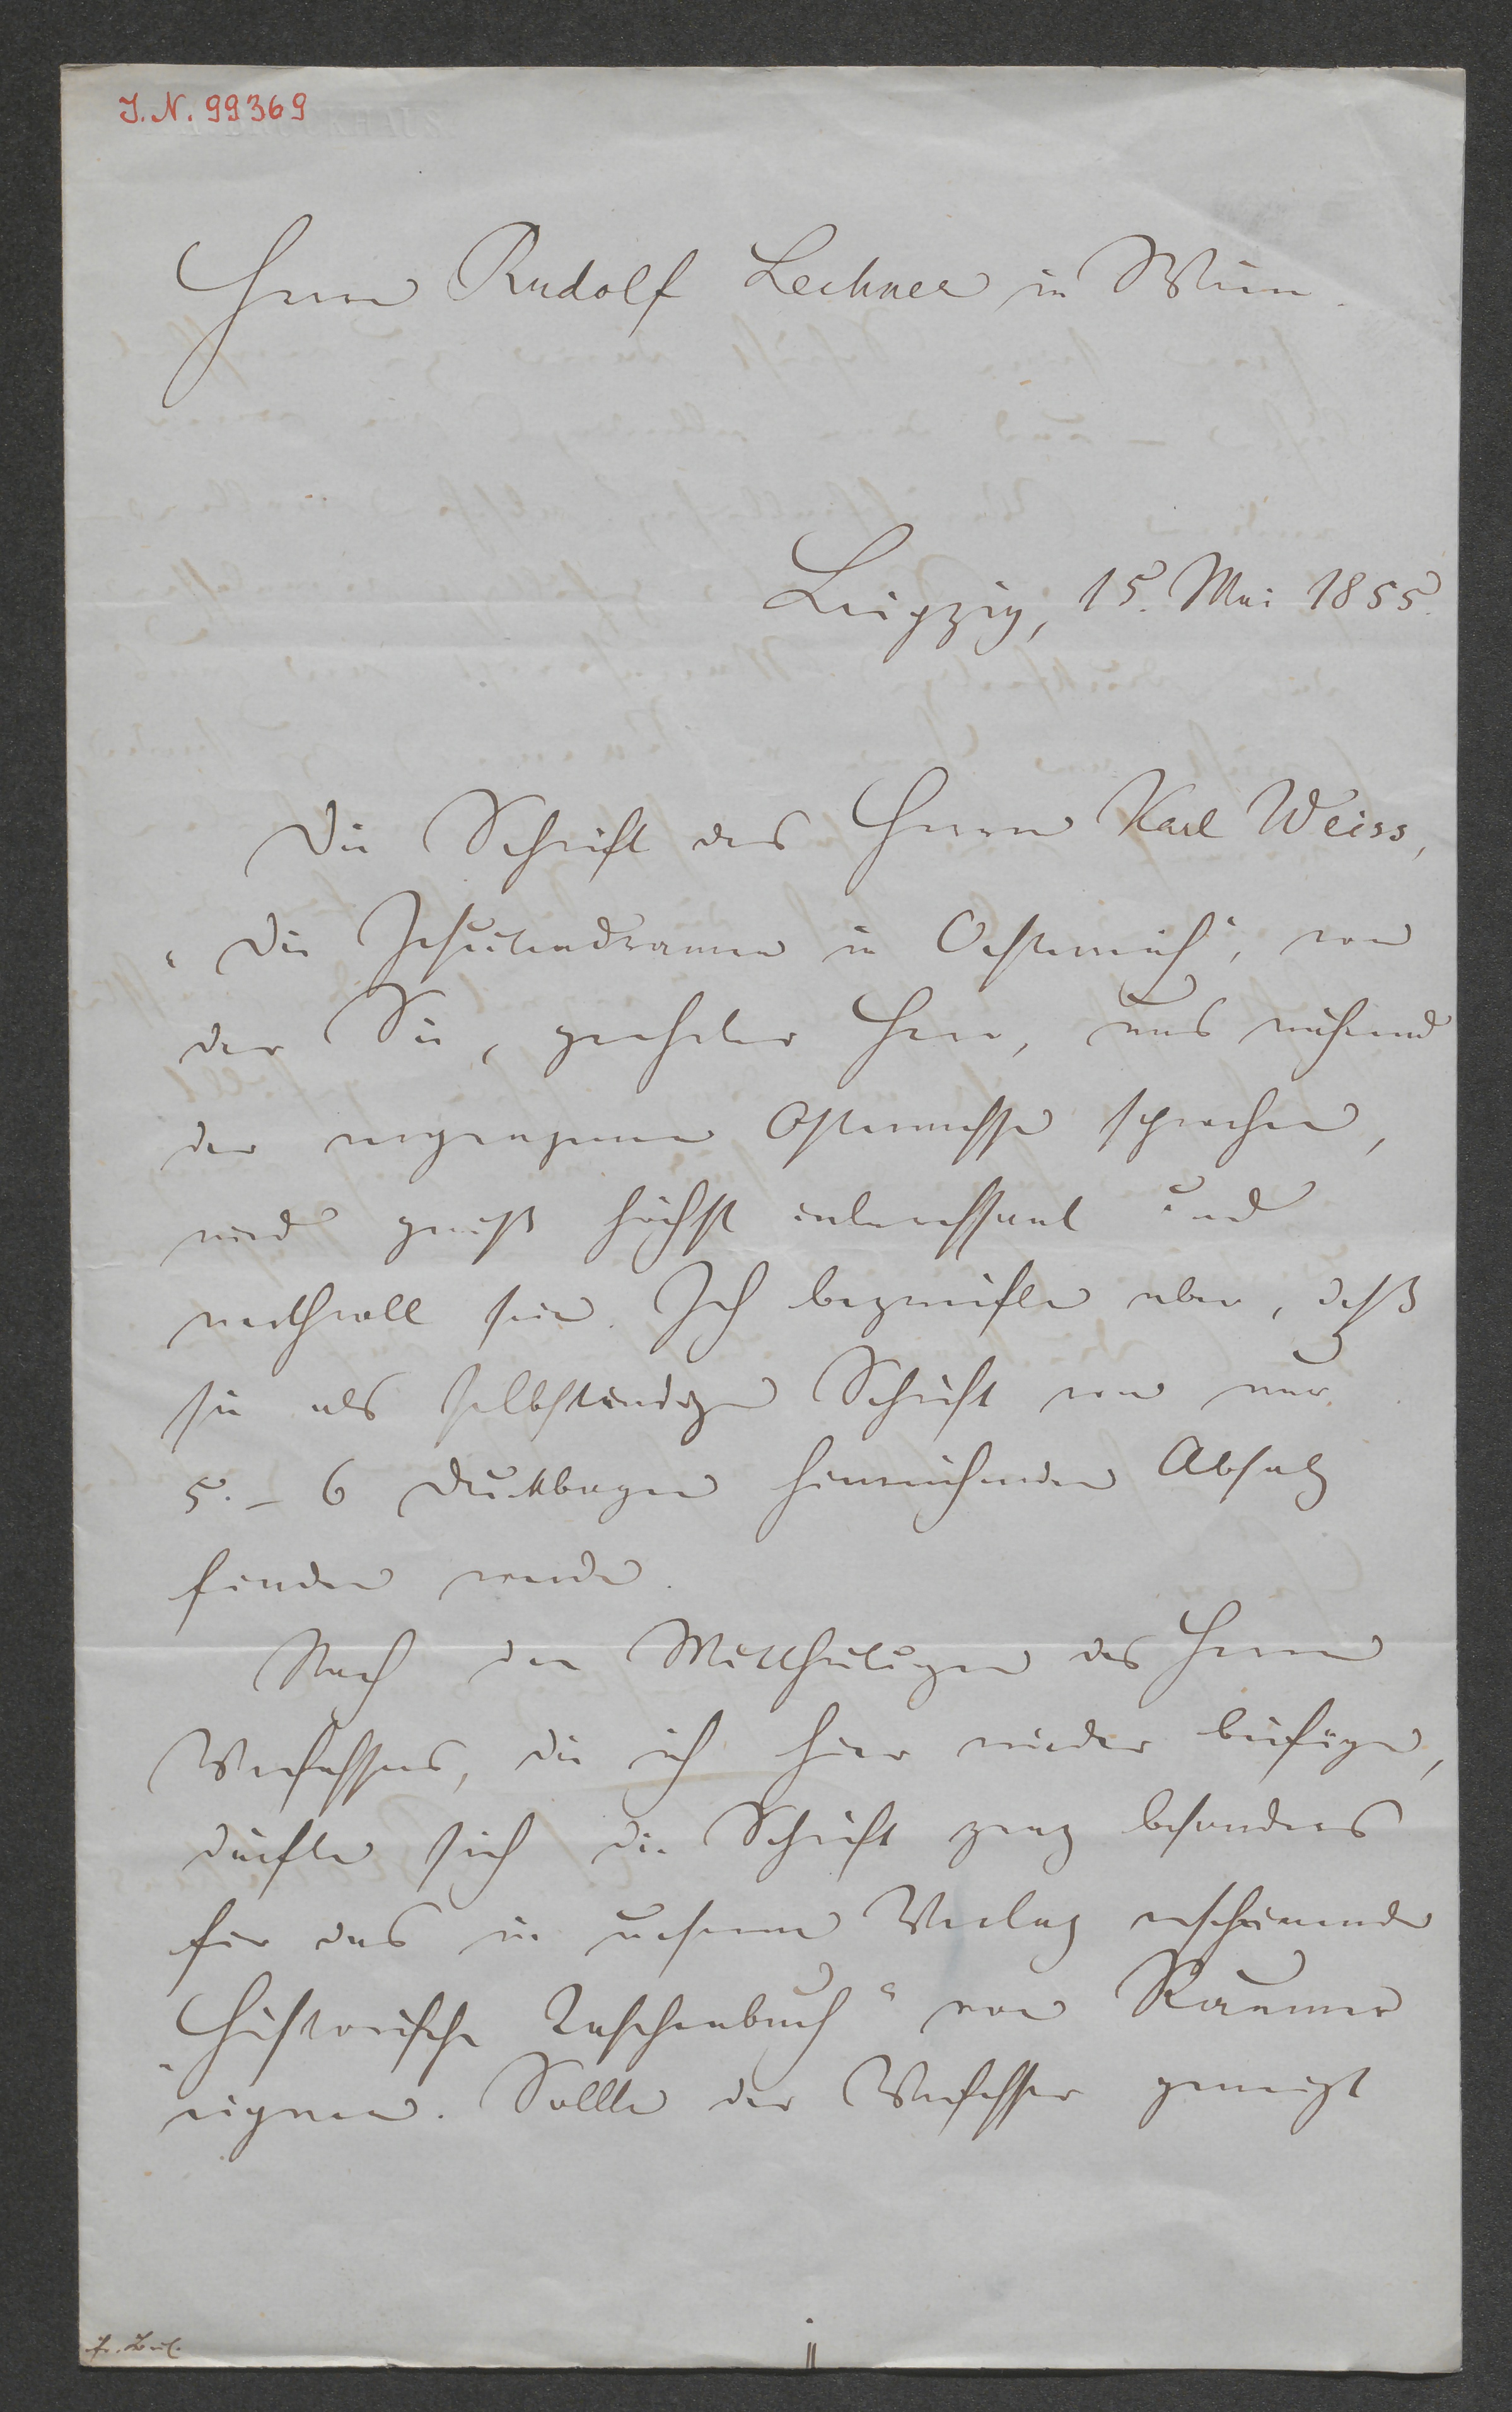 J. N. 99369
Herrn Rudolf Lechner in Wien.
Leipzig, 15. Mai 1855.
Die Schrift des Herrn Karl Weiss,
„Die Jesuitendramen in Oesterreich“, von
der Sie, geehrter Herr, uns während
der vergangenen Ostermesse sprachen,
wird gewiß höchst interessant und
werthvoll sein. Ich bezweifle aber, daß
sie als selbständige Schrift von nur
5 – 6 Druckbogen hinreichenden Absatz
finden werde.
Nach den Mittheilungen des Herrn
Verfassers, die ich hier wieder beifüge,
dürfte sich die Schrift ganz besonders
für das in unserm Verlag erscheinende
„Historische Taschenbuch“ von Raumer
eignen. Sollte der Verfasser geneigt